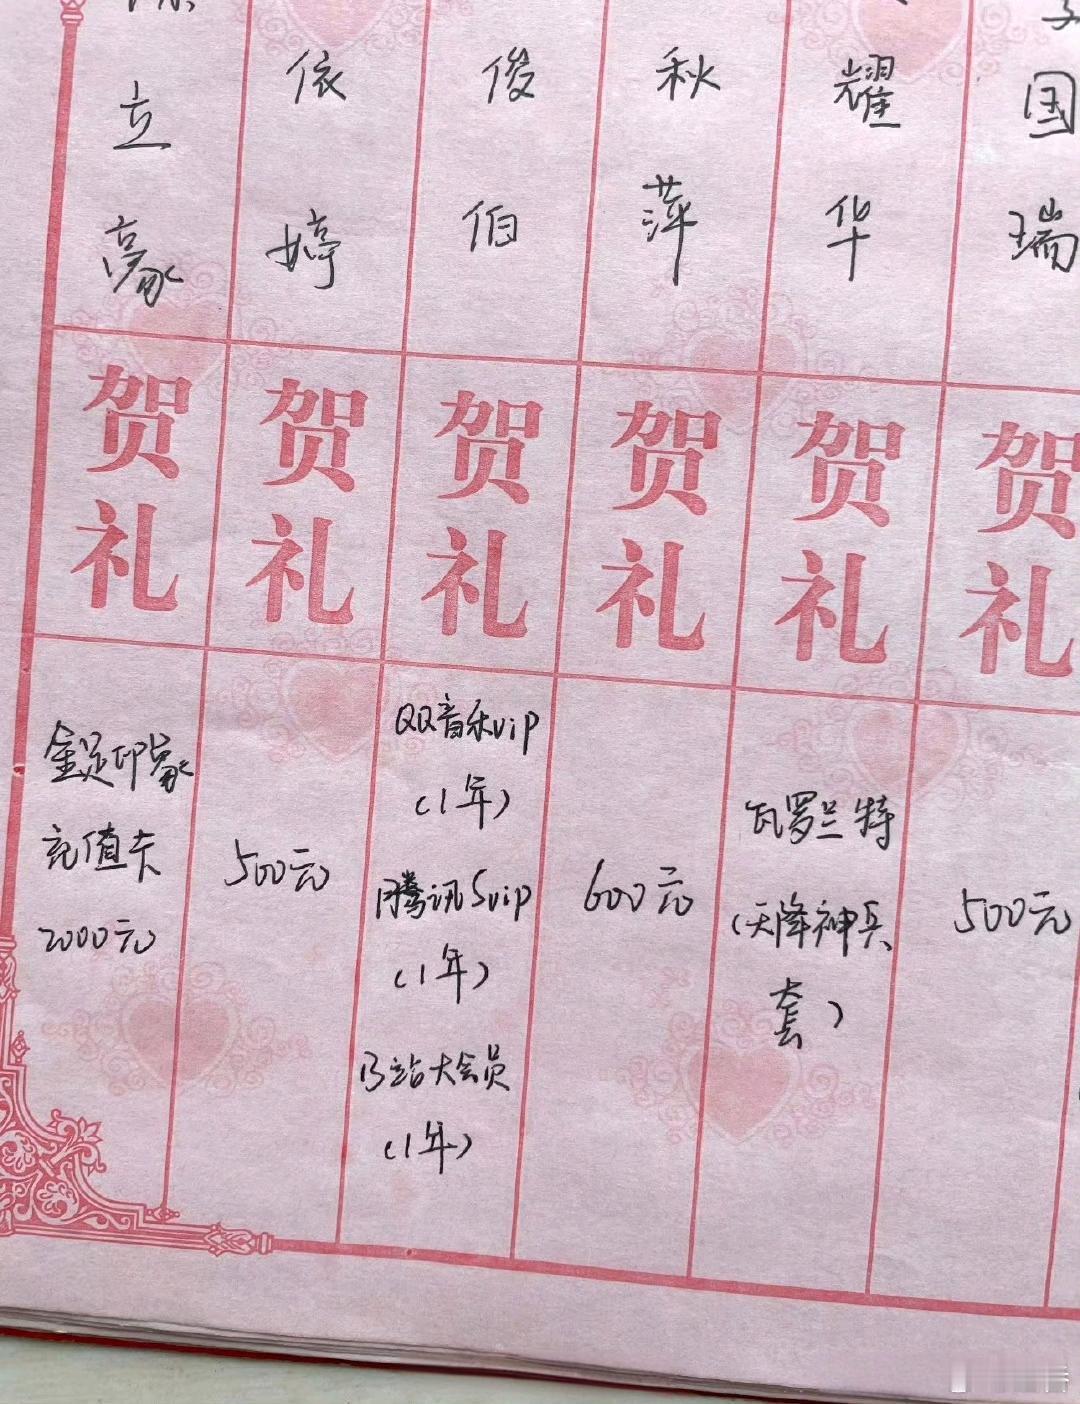 立豪
贺礼
金足印象
充值卡
2000元
依婷
贺礼
500元
俊伯
贺礼
QQ音乐vip
(1年)
腾讯Svip
(1年)
B站大会员
(1年)
秋萍
贺礼
600元
耀华
贺礼
瓦罗兰特
(天降神兵
套)
国瑞
贺礼
500元